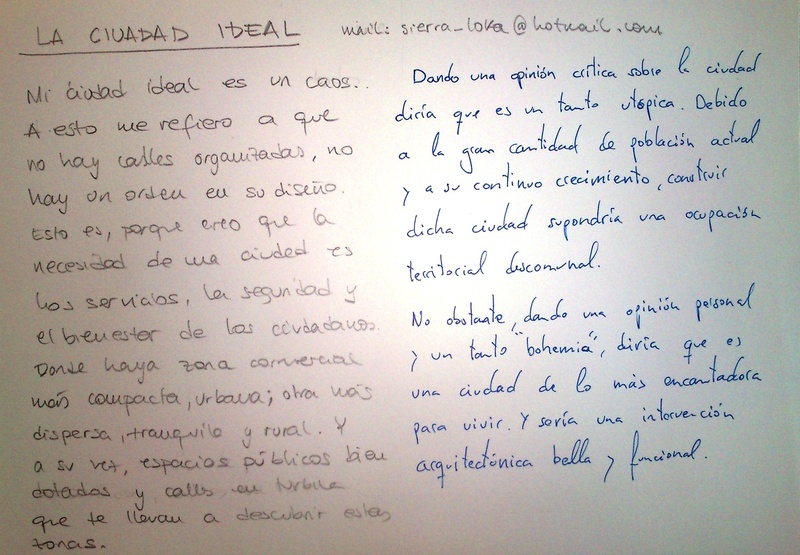 LA CIUADAD IDEAL
mail: sierra_loka@hotmail.com
Mi ciudad ideal es un caos..
A esto me refiero a que
no hay calles organizadas, no
hay un orden en su diseño.
Esto es, porque creo que la
necesidad de una ciudad es
los servicios, la seguridad y
el bienester de los ciudadanos.
Donde haya zona comercial
más compacta, urbana; otra más
dispersa, tranquila y rural. Y
a su vez, espacios públicos bien
dotados y calles en
que te llevan a descubrir estas
zonas.
Dando una opinión crítica sobre la ciudad
diría que es un tanto utópica. Debido
a la gran cantidad de población actual
y a su continuo crecimiento, construir
dicha ciudad supondría una ocupación
territorial descomunal.
No obstante, dando una opinión personal
y un tanto "bohemia", diría que es
una ciudad de lo más encantadora
para vivir. Y sería una intervención
arquitectónica bella y funcional.